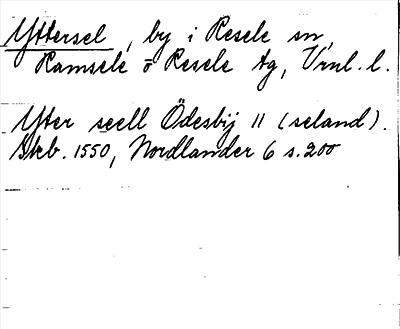 Yttersel, by i Resele sn,
Ramsele o Resele tg, Vnl. l.
Ytter seell Ödesbÿ 11 (seland).
Skb. 1550, Nordlander 6 s. 200